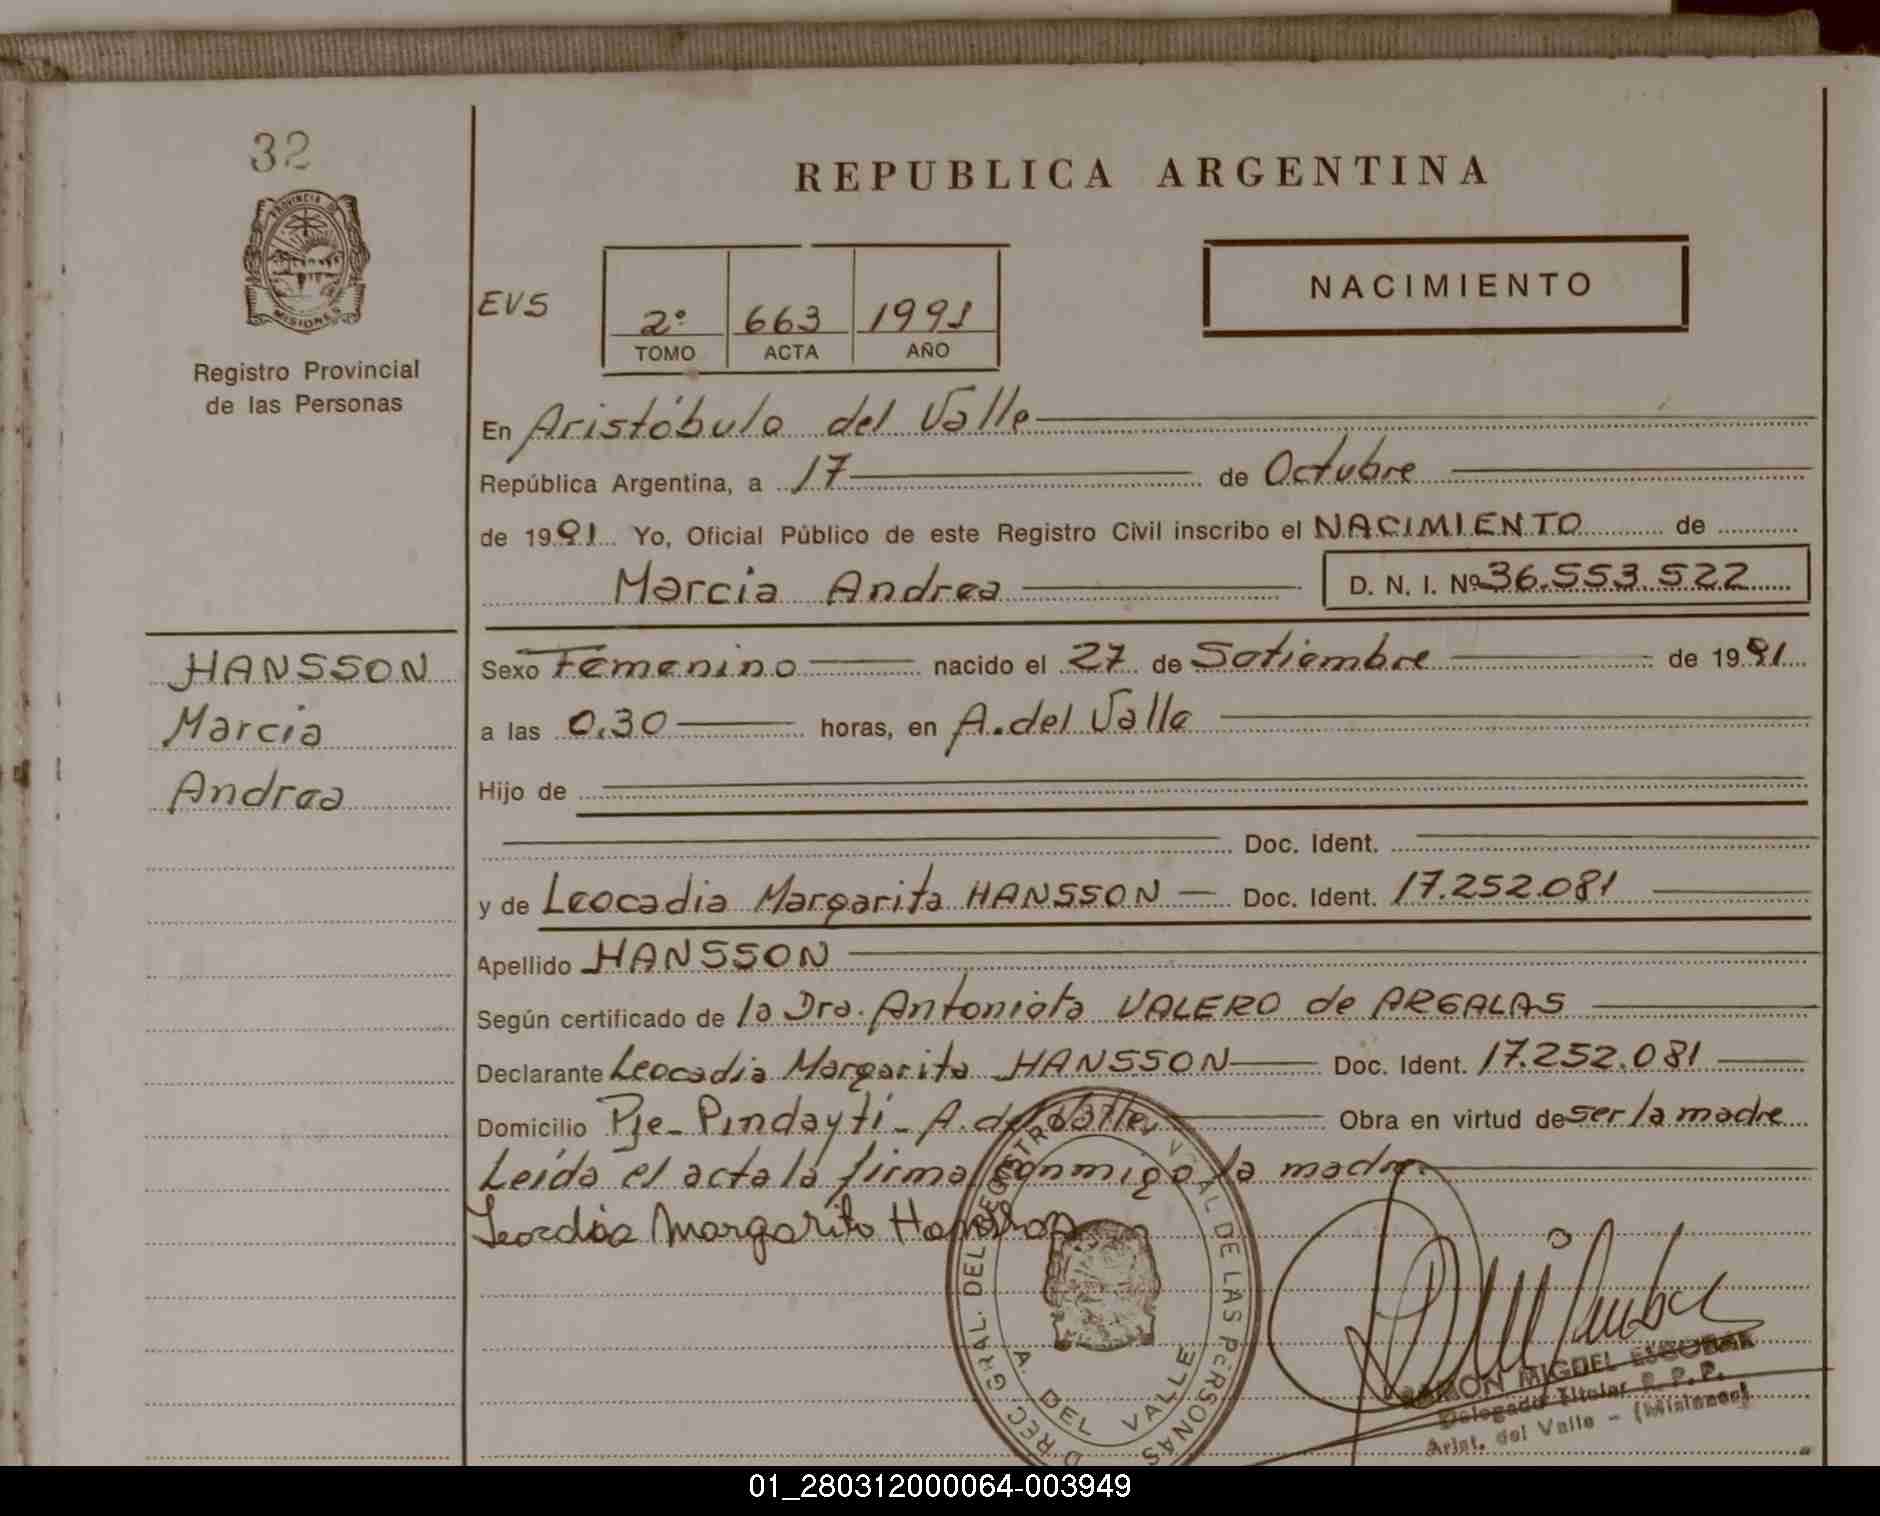 32
REPUBLICA ARGENTINA
PROVINCIA DE
MISIONES
Registro Provincial
de las Personas
EVS
2º 663 1991
TOMO ACTA AÑO
NACIMIENTO
En Aristóbulo del Valle
República Argentina, a 17 de Octubre
de 1991 Yo, Oficial Público de este Registro Civil inscribo el NACIMIENTO de
Marcia Andrea D. N. I. Nº 36.553.522
HANSSON
Marcia
Andrea
Sexo Femenino nacido el 27 de Setiembre de 1991
a las 0.30 horas, en A. del Valle
Hijo de
Doc. Ident.
y de Leocadia Margarita HANSSON Doc. Ident. 17.252.081
Apellido HANSSON
Según certificado de la Dra. Antonieta VALERO de ARGALAS
Declarante Leocadia Margarita HANSSON Doc. Ident. 17.252.081
Domicilio Pje- Pindaytí - A. del Valle Obra en virtud de ser la madre
Leída el acta la firma conmigo la madre.
Leocdia Margarita Hansson
D REC GRAL. DEL REGISTRO DE LAS PERSONAS
A. DEL VALLE
RAMON MIGUEL ESCOBAR
Delegado Titular R. P. P.
Arist. del Valle - (Misiones)
01_280312000064-003949